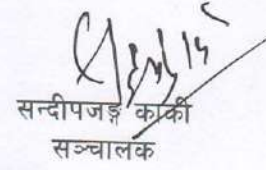 सन्दीपजङ्ग कार्की
सञ्चालक